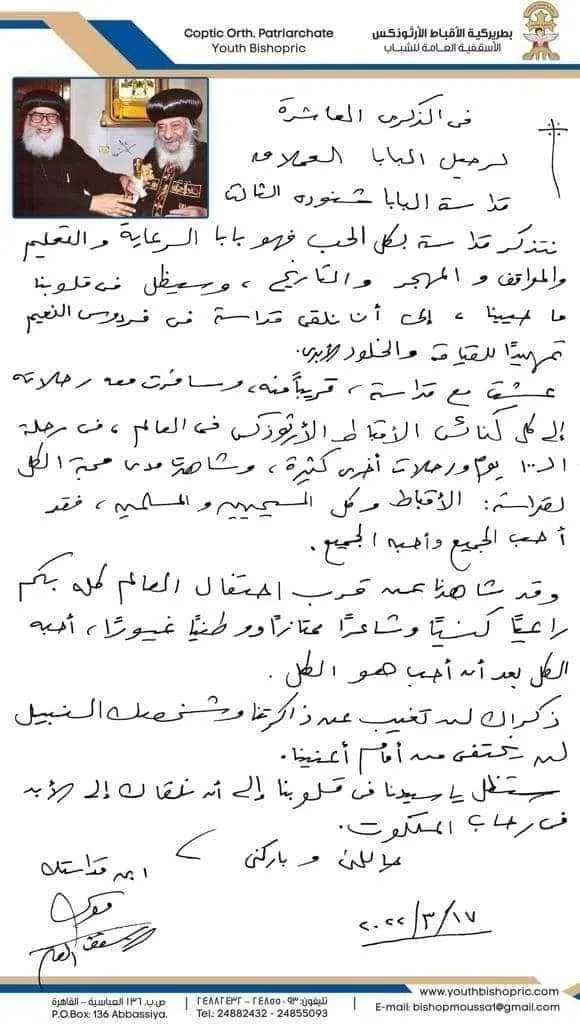 Coptic Orth. Patriarchate
Youth Bishopric
بطريركية الأقباط الأرثوذكس
الأسقفية العامة للشباب
فى الذكرى العاشرة
لرحيل البابا العملاق
قداسة البابا شنوده الثالث
نتذكر قداسته بكل الحب فهو بابا الرعاية والتعليم
والمواقف والمهجر والتاريخ ، وسيظل فى قلوبنا
ما حيينا ، إلى أن نلقى قداسته فى فردوس النعيم
تمهيدًا للقيامة والخلود الأبدى.
عشت مع قداسته ، قريباً منه، وسافرت معه رحلاته
إلى كل كنائس الأقباط الأرثوذكس فى العالم ، فى رحلة
الـ ١٠٠ يوم ورحلات أخرى كثيرة ، وشاهدت مدى محبة الكل
لقداسته: الأقباط وكل المسيحيين والمسلمين ، فقد
أحب الجميع وأحبه الجميع.
وقد شاهدنا عن قرب احتفال العالم كله بكم
راعيًا كنسيًا وشاعرًا ممتازًا ووطنيًا غيورًا، أحبه
الكل بعد أن أحب هو الكل.
ذكراك لن تغيب عن ذاكرتنا وشخصك النبيل
لن يختفى من أمام أعيننا.
ستظل يا سيدنا فى قلوبنا وإلى أن نلقاك إلى الأبد
فى رحاب الملكوت.
حاللنى وباركنى
ابن قداستك
موسى
الأسقف العام
٢٠٢٢/٣/١٧
www.youthbishopric.com
E-mail: bishopmoussa1@gmail.com
تليفون: ٢٤٨٥٥٠٩٣ - ٢٤٨٨٢٤٣٢
Tel: 24882432 - 24855093
ص.ب. ١٣٦ العباسية - القاهرة
P.O.Box: 136 Abbassiya.